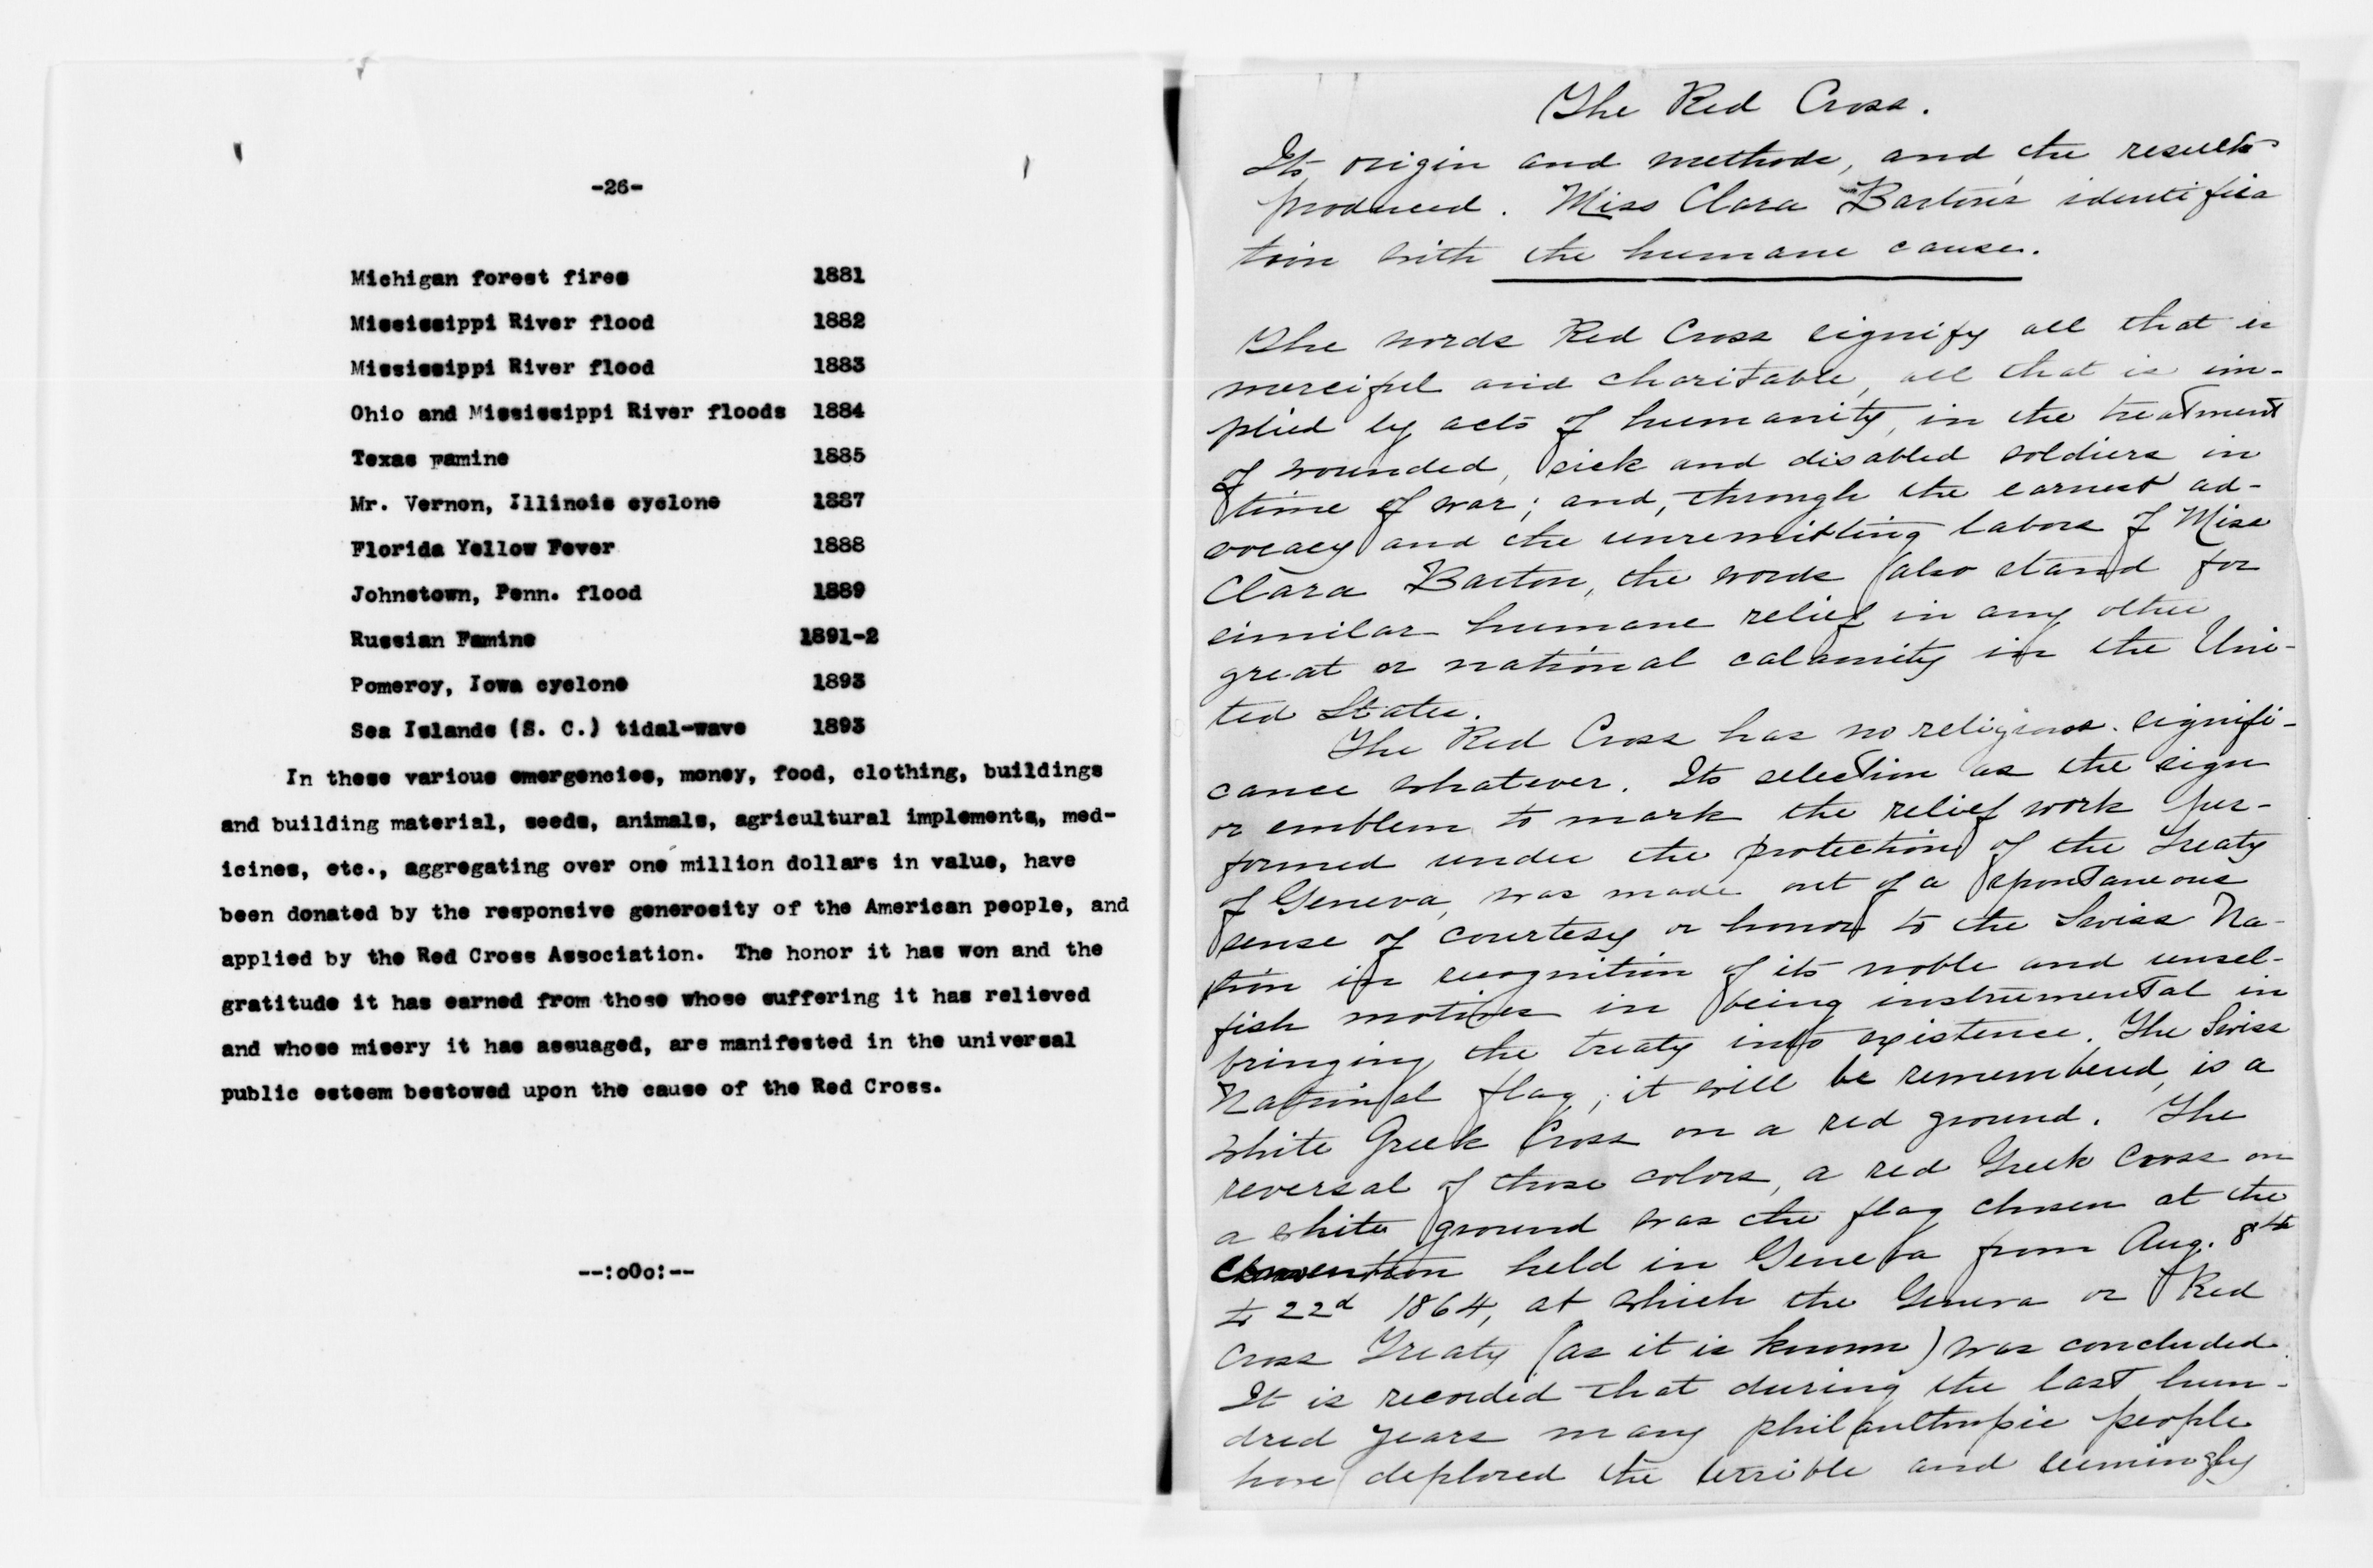 -26-
Michigan forest fires 1881
Mississippi River flood 1882
Mississippi River flood 1883
Ohio and Mississippi River floods 1884
Texas Famine 1885
Mr. Vernon, Illinois cyclone 1887
Florida Yellow Fever 1888
Johnstown, Penn. flood 1889
Russian Famine 1891-2
Pomeroy, Iowa cyclone 1893
Sea Islands (S. C.) tidal-wave 1893
In these various emergencies, money, food, clothing, buildings
and building material, seeds, animals, agricultural implements, med-
icines, etc., aggregating over one million dollars in value, have
been donated by the responsive generosity of the American people, and
applied by the Red Cross Association. The honor it has won and the
gratitude it has earned from those whose suffering it has relieved
and whose misery it has assuaged, are manifested in the universal
public esteem bestowed upon the cause of the Red Cross.
--:oOo:--
The Red Cross.
Its origin and methods, and the results
produced. Miss Clara Barton's identifica
tion with the humane cause.
The words Red Cross signify all that is
merciful and charitable, all that is im-
plied by acts of humanity, in the treatment
of wounded, sick and disabled soldiers in
time of war; and, through the earnest ad-
vocacy and the unremitting labors of Miss
Clara Barton, the words also stand for
similar humane relief in any other
great or national calamity in the Uni-
ted States.
The Red Cross has no religious signifi-
cance whatever. Its selection as the sign
or emblem to mark the relief work per-
formed under the protection of the Treaty
of Geneva, was made out of a spontaneous
sense of courtesy or honor to the Swiss Na-
tion in recognition of its noble and unsel-
fish motives in being instrumental in
bringing the treaty into existence. The Swiss
National flag, it will be remembered, is a
white Greek Cross on a red ground. The
reversal of those colors, a red Greek Cross on
a white ground was the flag chosen at the
Convention held in Geneva from Aug. 8th
to 22d 1864, at which the Geneva or Red
Cross Treaty (as it is known) was concluded.
It is recorded that during the last hun-
dred years many philanthropic people
have deplored the terrible and seemingly